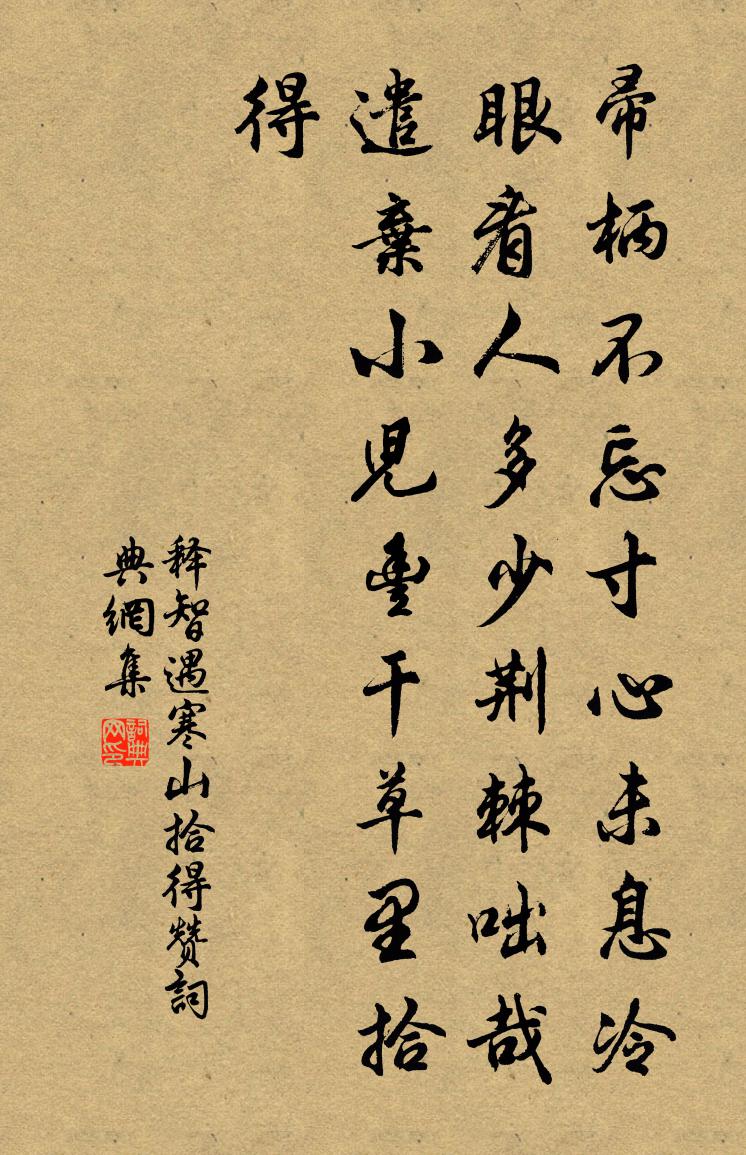 帚柄不忘寸心未息冷
眼看人多少荆棘咄哉
遣棄小兒豊干草里拾
得
释智遇寒山拾得赞詞
典網集
詞典
网印